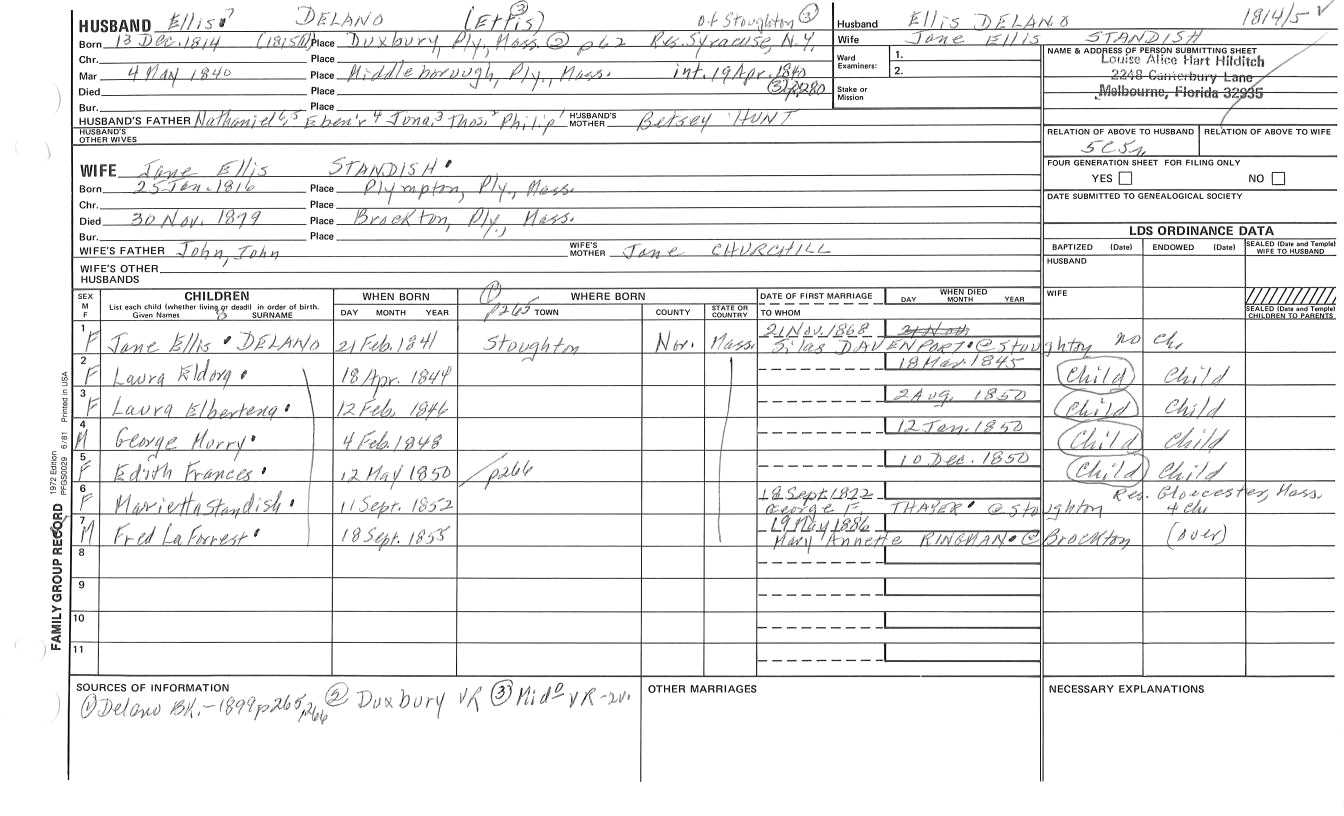 HUSBAND Ellis? DELANO (Ettis) ③ of Stoughton ③
Born 13 Dec. 1814 (1815①) Place Duxbury, Ply., Mass. ② p62 Res. Syracuse, N.Y.
Chr. Place
Mar 4 May 1840 Place Middleborough, Ply., Mass. int. 19 Apr. 1840
Died Place (3)2,280
Bur. Place
HUSBAND'S FATHER Nathaniel 6,5 Eben'r 4 Jona. 3 Thos. 2 Philip 1 HUSBAND'S MOTHER Betsey HUNT
HUSBAND'S OTHER WIVES
WIFE Jane Ellis STANDISH
Born 25 Jan. 1816 Place Plympton, Ply., Mass.
Chr. Place
Died 30 Nov. 1879 Place Brockton, Ply., Mass.
Bur. Place
WIFE'S FATHER John, John WIFE'S MOTHER Jane CHURCHILL
WIFE'S OTHER HUSBANDS
Husband Ellis DELANO 1814/5 ✓
Wife Jane Ellis STANDISH
Ward Examiners: 1.
2.
Stake or Mission
NAME & ADDRESS OF PERSON SUBMITTING SHEET
Louise Alice Hart Hilditch
2248 Canterbury Lane
Melbourne, Florida 32935
RELATION OF ABOVE TO HUSBAND RELATION OF ABOVE TO WIFE
5C5r
FOUR GENERATION SHEET FOR FILING ONLY
YES NO
DATE SUBMITTED TO GENEALOGICAL SOCIETY
LDS ORDINANCE DATA
BAPTIZED (Date) ENDOWED (Date) SEALED (Date and Temple) WIFE TO HUSBAND
HUSBAND
WIFE
SEALED (Date and Temple) CHILDREN TO PARENTS
SEX M F CHILDREN WHEN BORN ① WHERE BORN DATE OF FIRST MARRIAGE WHEN DIED
List each child (whether living or dead) in order of birth. Given Names SURNAME DAY MONTH YEAR p265 TOWN COUNTY STATE OR COUNTRY TO WHOM DAY MONTH YEAR
1 F Jane Ellis DELANO 21 Feb. 1841 Stoughton Nor. Mass. 21 Nov. 1868 Silas DAVENPORT @ Stoughton no ch.
2 F Laura Eldora 18 Apr. 1844 18 Mar. 1845 Child Child
3 F Laura Elbertena 12 Feb. 1846 2 Aug. 1850 Child Child
4 M George Morry 4 Feb. 1848 12 Jan. 1850 Child Child
5 F Edith Frances 12 May 1850 p266 10 Dec. 1850 Child Child
6 F Marietta Standish 11 Sept. 1852 18 Sept. 1872 George F. THAYER @ Stoughton Res. Gloucester, Mass. 4 ch
7 M Fred LaForrest 18 Sept. 1855 19 May 1886 Mary Annette RINGMAN @ Brockton (over)
8
9
10
11
FAMILY GROUP RECORD 1972 Edition PFGS0029 6/81 Printed in USA
SOURCES OF INFORMATION
① Delano Bk. - 1899 p265, 266 ② Duxbury VR ③ Mid° VR - 2v.
OTHER MARRIAGES
NECESSARY EXPLANATIONS